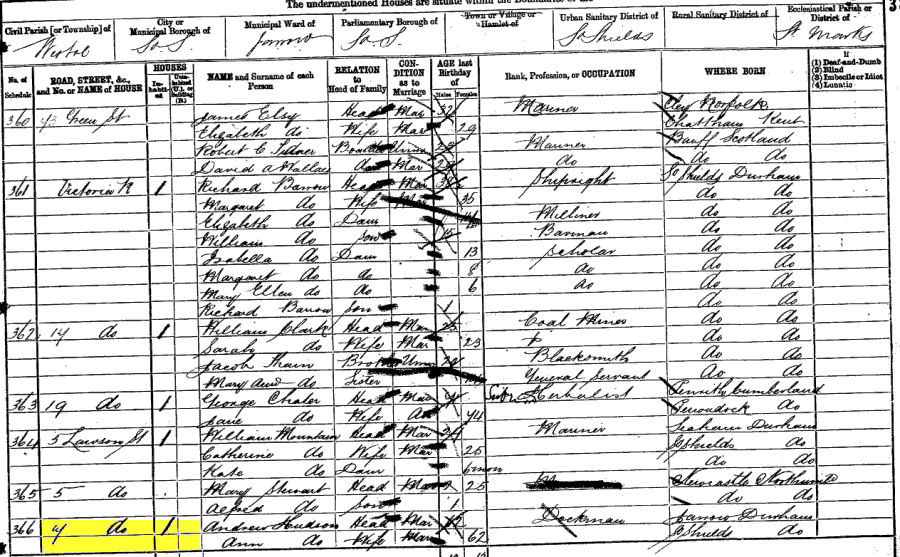 The undermentioned Houses are situate within the Boundaries of the
Civil Parish [or Township] of
City or Municipal Borough of
Municipal Ward of
Parliamentary Borough of
Town or Village or Hamlet of
Urban Sanitary District of
Rural Sanitary District of
Ecclesiastical Parish or District of
Westoe So S. Jarrow So S. So Shields St Marks
No. of Schedule
ROAD, STREET, &c., and No. or NAME of HOUSE
HOUSES
Inhabited
Uninhabited (U.), or Building (B.)
NAME and Surname of each Person
RELATION to Head of Family
CONDITION as to Marriage
AGE last Birthday of
Males Females
Rank, Profession, or OCCUPATION
WHERE BORN
If
(1) Deaf-and-Dumb
(2) Blind
(3) Imbecile or Idiot
(4) Lunatic
360 43 Green St James Elsy Head Mar 32 Mariner Cley Norfolk
Elizabeth do Wife Mar 29 Chatham Kent
Robert C Boarder Unm Mariner Banff Scotland
David a Wallace do Mar do do do
361 Victoria 1 Richard Barrow Head Mar Shipwright So Shields Durham
Margaret do Wife Mar 35 do do
Elizabeth do Daur Milliner do do
William do Son 15 Barman do do
Isabella do Daur 13 Scholar do do
Margaret do do 8 do do do
Mary Ellen do do 6 do do do
Richard Barrow Son 1 do do
362 14 do 1 William Clark Head Mar 25 Coal Miner do do
Sarah do Wife Mar 23 do do
Jacob Brother Unm Blacksmith do do
Mary Ann do Sister General Servant do do
363 19 do 1 George Chater Head Mar Herbalist Cumberland
Jane do Wife do 44 do
364 5 Lawson St 1 William Mountain Head Mar 24 Mariner Seaham Durham
Catherine do Wife Mar 25 S Shields do
Kate do Daur 6 mon do do
365 5 do Mary Stewart Head 25 Newcastle
Alfred do Son 1 do do
366 4 do 1 Andrew Hudson Head Mar Dockman Jarrow Durham
Ann do Wife Mar 62 S Shields do